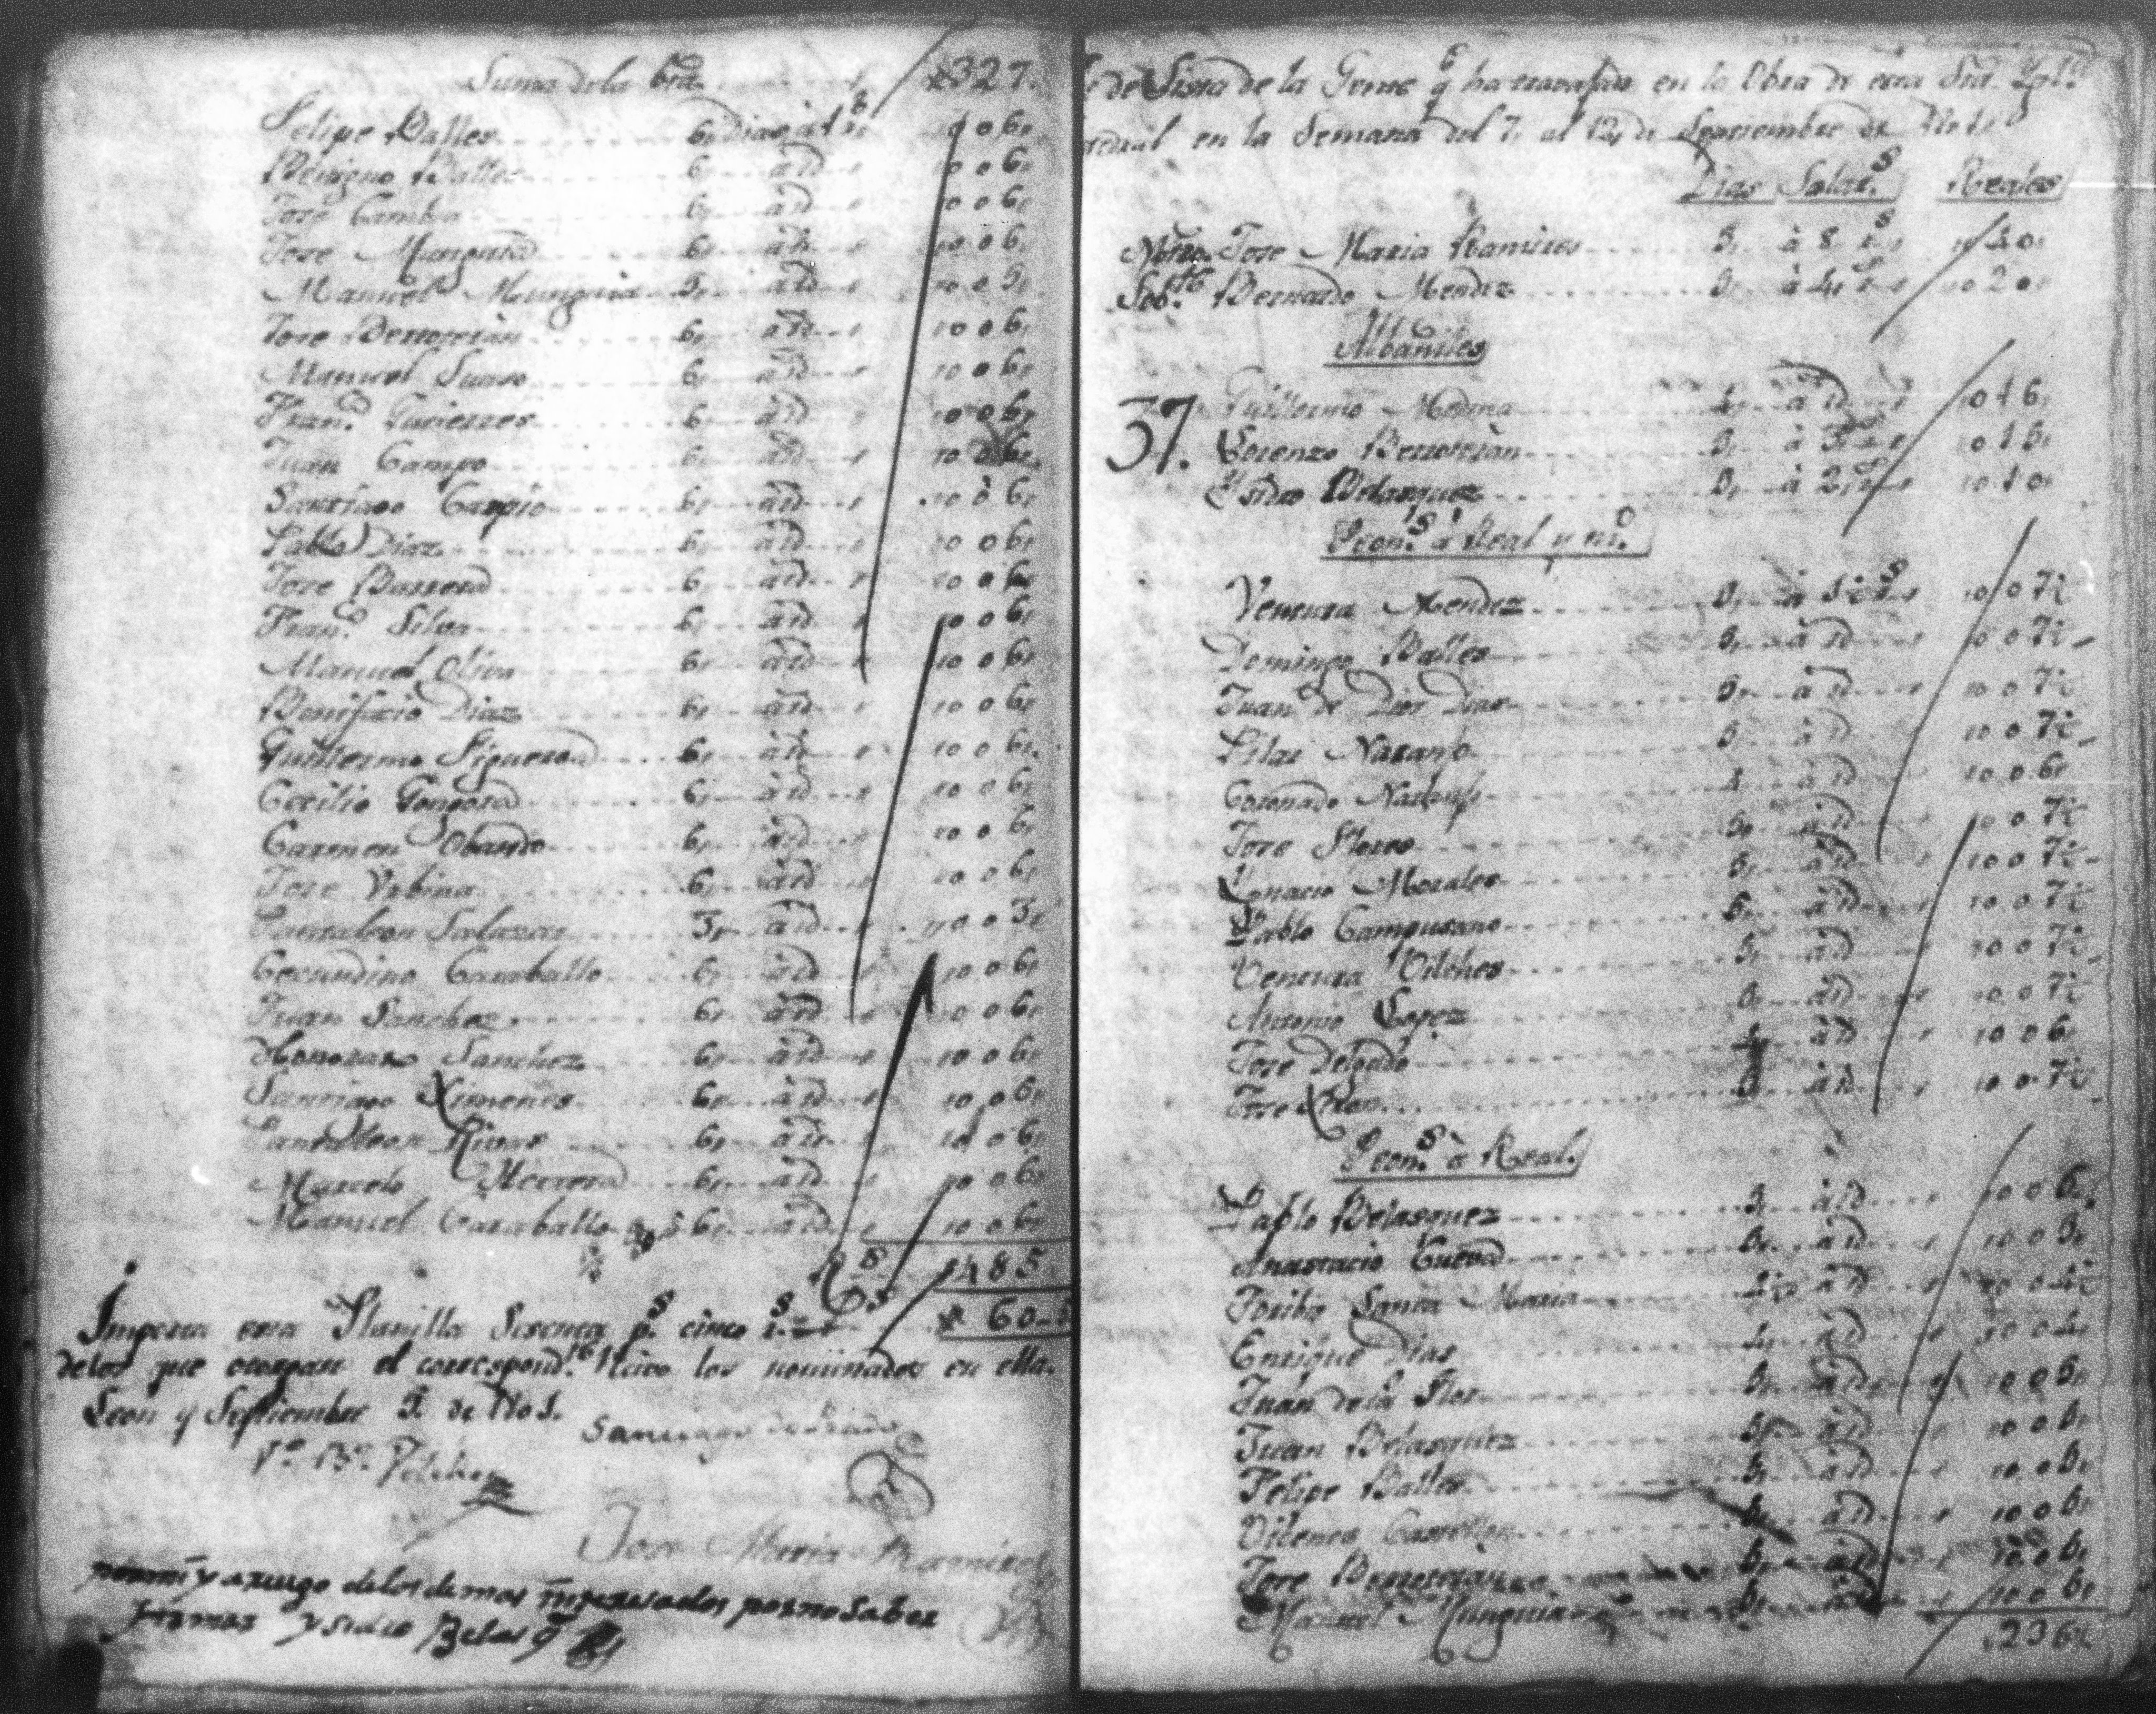 Suma de la bta. 327.
Felipe Valles 6, dias á 1 rs 006,
Benigno Valles 6, á id 006,
Jose Gamba 6, á id 006,
Jose Munguia 6, á id 006,
Manuel Munguia 5, á id 005,
Jose Berroteran 6, á id 006,
Manuel Suaso 6, á id 006,
Franco. Gutierres 6, á id 006,
Juan Campo 6, á id 006,
Santiago Carpio 6, á id 006,
Pablo Diaz 6, á id 006,
Jose Barrera 6, á id 006,
Franco. Silva 6, á id 006,
Manuel Oliva 6, á id 006,
Bonifacio Diaz 6, á id 006,
Guillermo Figueroa 6, á id 006,
Cecilio Gongora 6, á id 006,
Carmen Obando 6, á id 006,
Jose Urbina 6, á id 006,
Pantaleon Salazar 3, á id 003,
Secundino Caraballo 6, á id 006,
Juan Sanchez 6, á id 006,
Honorato Sanchez 6, á id 006,
Santiago Ximenes 6, á id 006,
Pantaleon Rivas 6, á id 006,
Marcelo Herrera 6, á id 006,
Manuel Caraballo 6, á id 006,
485
60
Importa esta Planilla Sesenta ps. cinco rs.
de los que otorgan el correspondte. recivo los nominados en ella.
Leon y Septiembre 5. de
Vo. Bo. Vilches
Santiago
Jose Maria Ramires
por mi y a ruego de los demas interesados por no saber
firmar Ysidro Belasqz
de Lista de la Gente q ha travajado en la Obra de esta Sta. Ygla.
tedral en la Semana del 7, al 12, de Septiembre de
Dias Salars. Reales
Mtro. Jose Maria Ramires 5, á 8 rs 40,
Sobte. Bernardo Mendez 5, á 4, rs 20,
Albañiles
37. Guillermo Medina 4, á id 016,
Lorenzo Berroteran 5, á 3 rs 015,
Ysidro Belasquez 5, á 2 rs 010,
Peons. á Real y mo.
Ventura Mendez 5, á 1½ rs 007½
Domingo Valles 5, á id 007½
Juan de Dios Dias 5, á id 007½
Pilar Naranjo 5, á id 007½
Coronado 4, á id 006,
Jose Flores 5, á id 007½
Ygnacio Morales 5, á id 007½
Pablo Campusano 5, á id 007½
Ventura Vilches 5, á id 007½
Antonio Lopez 5, á id 007½
Jose Delgado 4, á id 006,
Jose Xiron 5, á id 007½
Peons. á Real.
Pablo Belasquez 5, á id 005,
Anastacio Cueva 5, á id 005,
Toribio Santa Maria 4½ á id 004½
Enrique Dias 4, á id 004,
Juan de la Flor 5, á id 005,
Juan Belasquez 5, á id 005,
Felipe Valles 5, á id 005,
Castellon 5, á id 005,
Jose Berroteran 5, á id 005,
Manuel Munguia 5, á id 005,
236½